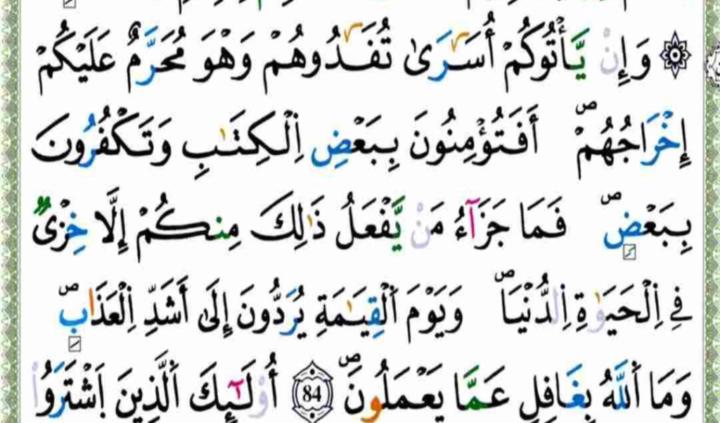 ۞ وَإِنْ يَّأْتُوكُمْ أُسَٰرَىٰ تُفَٰدُوهُمْ وَهُوَ مُحَرَّمٌ عَلَيْكُمْ
إِخْرَاجُهُمْ ۖ أَفَتُؤْمِنُونَ بِبَعْضِ اِ۬لْكِتَٰبِ وَتَكْفُرُونَ
بِبَعْضٍ ۖ فَمَا جَزَآءُ مَنْ يَّفْعَلُ ذَٰلِكَ مِنكُمْ إِلَّا خِزْىٌ
فِے اِ۬لْحَيَوٰةِ اِ۬لدُّنْيَا ۖ وَيَوْمَ اَ۬لْقِيَٰمَةِ يُرَدُّونَ إِلَىٰ أَشَدِّ اِ۬لْعَذَابِ ۖ
وَمَا اَ۬للَّهُ بِغَافِلٍ عَمَّا يَعْمَلُونَ ۖ 84 أُوْلَٰٓئِكَ اَ۬لَّذِينَ اَ۪شْتَرَوُا